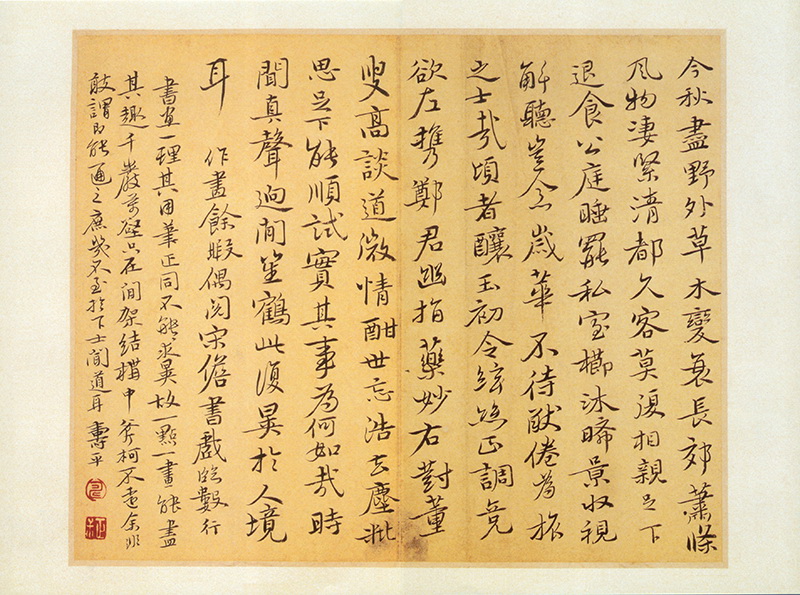 今秋盡野外草木變衰長郊蕭條
風物淒緊清都久客莫復相親足下
退食公庭睡罷私室櫛沐晞景收視
解聽豈念歲華不待猷倦為振
之士哉頃者釀玉初令絃絲正調竟
欲左攜鄭君幽指藥妙右對董
叟高談道微情酣世忘浩去塵粃
思足下能順試實其事為何如哉時
聞真聲迥間笙鶴此復異於人境
耳
作畫餘暇偶閱宋儋書戲臨數行
書畫一理其用筆正同不能求異故一點一畫能盡
其趣千巖萬壑只在間架結構中斧柯不遠余非
敢謂即能通之庶幾不至於下士聞道耳 壽平